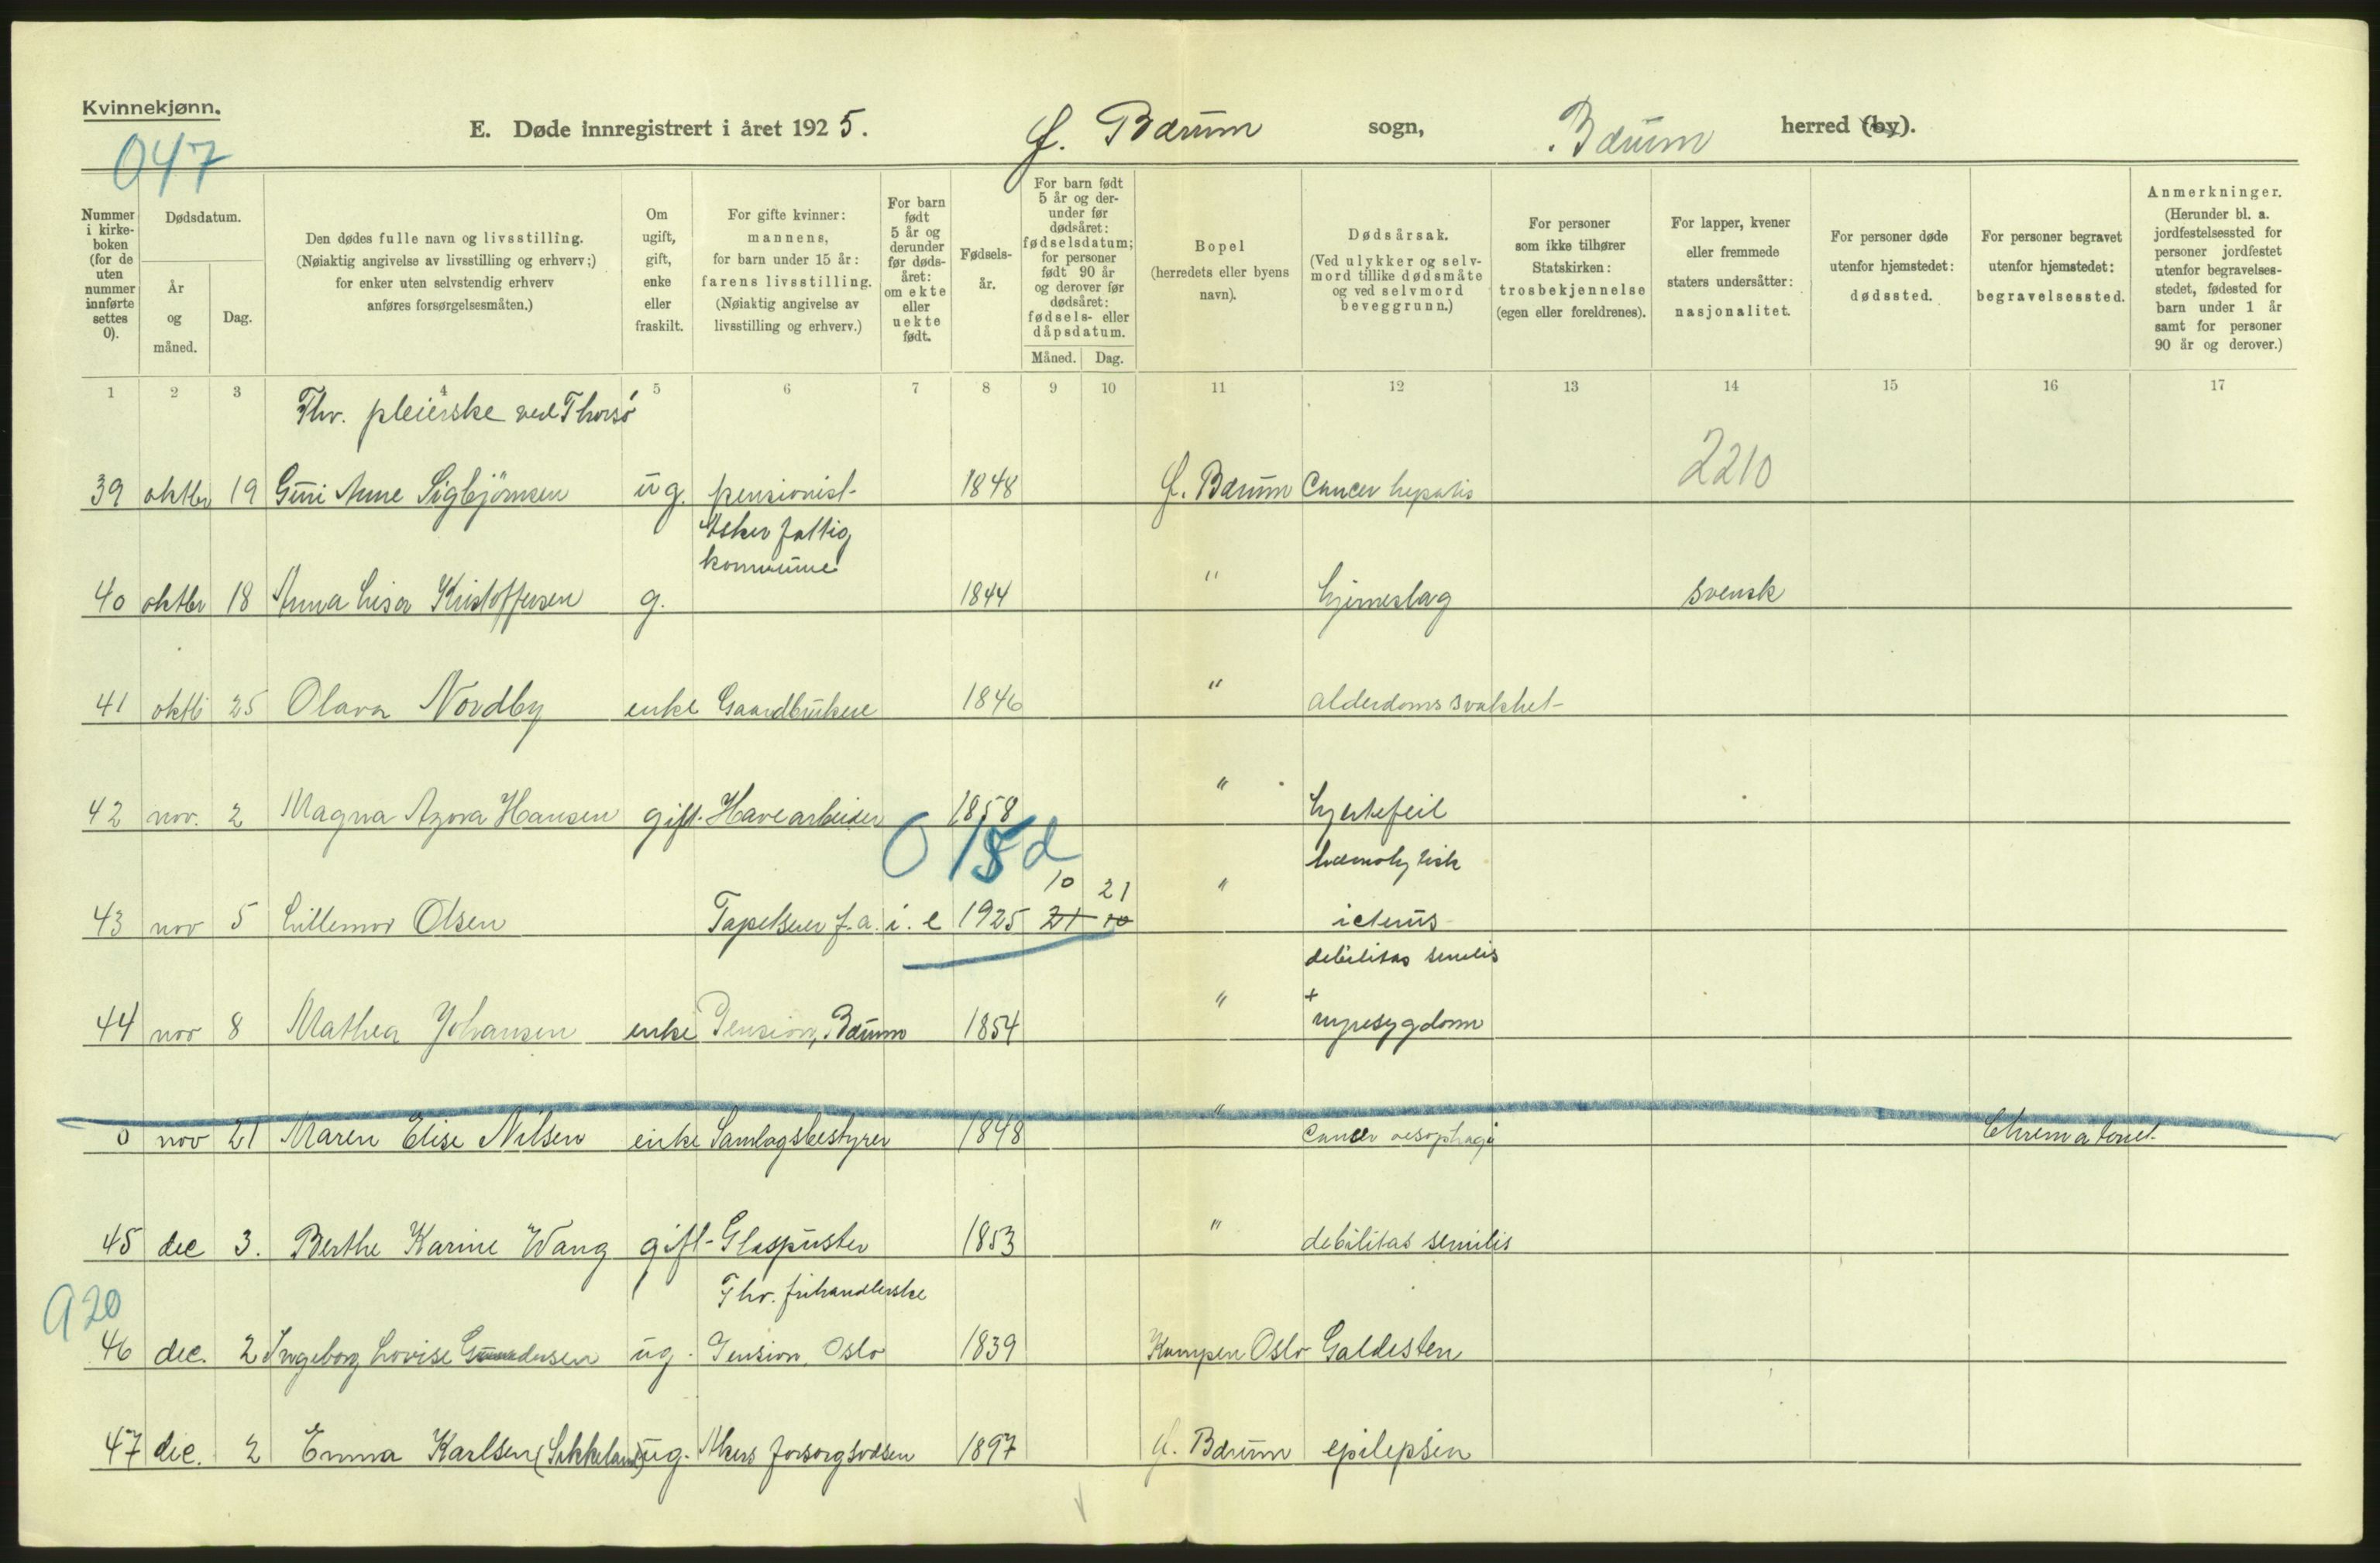 Kvinnekjønn.
047
E. Døde innregistrert i året 1925. Ø. Bærum sogn, Bærum herred (by).
Nummer i kirkeboken (for de uten nummer innførte settes 0).
Dødsdatum.
År og måned.
Dag.
Den dødes fulle navn og livsstilling.
(Nøiaktig angivelse av livsstilling og erhverv;)
for enker uten selvstendig erhverv
anføres forsørgelsesmåten.)
Om ugift, gift, enke eller fraskilt.
For gifte kvinner:
mannens,
for barn under 15 år:
farens livsstilling.
(Nøiaktig angivelse av
livsstilling og erhverv.)
For barn født 5 år og derunder før dødsåret: om ekte eller uekte født.
Fødselsår.
For barn født 5 år og derunder før dødsåret: fødselsdatum; for personer født 90 år og derover før dødsåret: fødsels- eller dåpsdatum.
Måned.
Dag.
Bopel
(herredets eller byens navn).
Dødsårsak.
(Ved ulykker og selvmord tillike dødsmåte og ved selvmord beveggrunn.)
For personer som ikke tilhører Statskirken: trosbekjennelse (egen eller foreldrenes).
For lapper, kvener eller fremmede staters undersåtter: nasjonalitet.
For personer døde utenfor hjemstedet: dødssted.
For personer begravet utenfor hjemstedet: begravelsessted.
Anmerkninger.
(Herunder bl. a. jordfestelsessted for personer jordfestet utenfor begravelsesstedet, fødested for barn under 1 år samt for personer 90 år og derover.)
1 2 3 4 5 6 7 8 9 10 11 12 13 14 15 16 17
Fhv. pleierske ved Thorsö
39 oktbr 19 Guri Anne Sigbjörnsen ug. pensionist 1848 Ø. Bærum Cancer hepatis 2210
Asker fattig
kommune
40 oktbr 18 Anna Lisa Kristoffersen g. 1844 " hjerneslag svensk
41 oktb 25 Olava Nordby enke Gaardbruker 1846 " alderdomssvakhet
42 nov. 2 Magna Azora Hansen gift Havearbeider 1858 " hjertefeil
0 15 d
10 21 hæmolytisk
43 nov 5 Lillemor Olsen Tapetserer f.a. i. e 1925 21 10 " icterus
debilitas senilis
44 nov 8 Mathea Johansen enke Pension, Bærum 1854 " +
nyresygdom
0 nov 21 Maren Elise Nilsen enke Samlagsbestyrer 1848 " Cancer oesophagi
45 dec 3. Berthe Karine Wang gift Glaspuster 1853 " debilitas senilis
Fhv. frihandlerske
A20
46 dec. 2 Ingeborg Lovise ug. Pension, Oslo 1839 Kampen Oslo Galdesten
47 dec. 2 Emma Karlsen ug. Akers forsorgsvæsen 1897 Ø. Bærum epilepsia